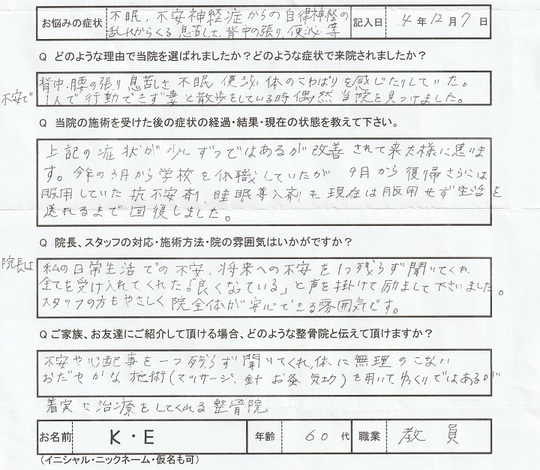 お悩みの症状 不眠、不安神経症からの自律神経の 記入日 4年12月7日
乱れからくる息苦しさ、背中の張り、便泌 等
Q どのような理由で当院を選ばれましたか？どのような症状で来院されましたか？
背中・腰の張り 息苦しさ 不眠 便泌 体のこわばりを感じたりしていた。
不安で 1人で行動できず妻と散歩をしている時偶然当院を見つけました。
Q 当院の施術を受けた後の症状の経過・結果・現在の状態を教えて下さい。
上記の症状が少しずつではあるが改善されて来た様に思いま
す。今年の3月から学校を休職していたが 9月から復帰さらには
服用していた抗不安剤、睡眠導入剤も現在は服用せず生活を
送れるまで回復しました。
Q 院長、スタッフの対応・施術方法・院の雰囲気はいかがですか？
院長は 私の日常生活での不安、将来への不安を1つ残らず聞いてくれ
全てを受け入れてくれた「良くなっている」と声を掛けて励まして下さいました。
スタッフの方もやさしく院全体が安心できる雰囲気です。
Qご家族、お友達にご紹介して頂ける場合、どのような整骨院と伝えて頂けますか？
不安や心配事を一つ残らず聞いてくれ、体に無理のこない
おだやかな施術(マッサージ、針 お灸 気功)を用いてゆっくりではあるが
着実に治療をしてくれる整骨院
お名前 K・E 年齢 60代 職業 教員
(イニシャル・ニックネーム・仮名も可)